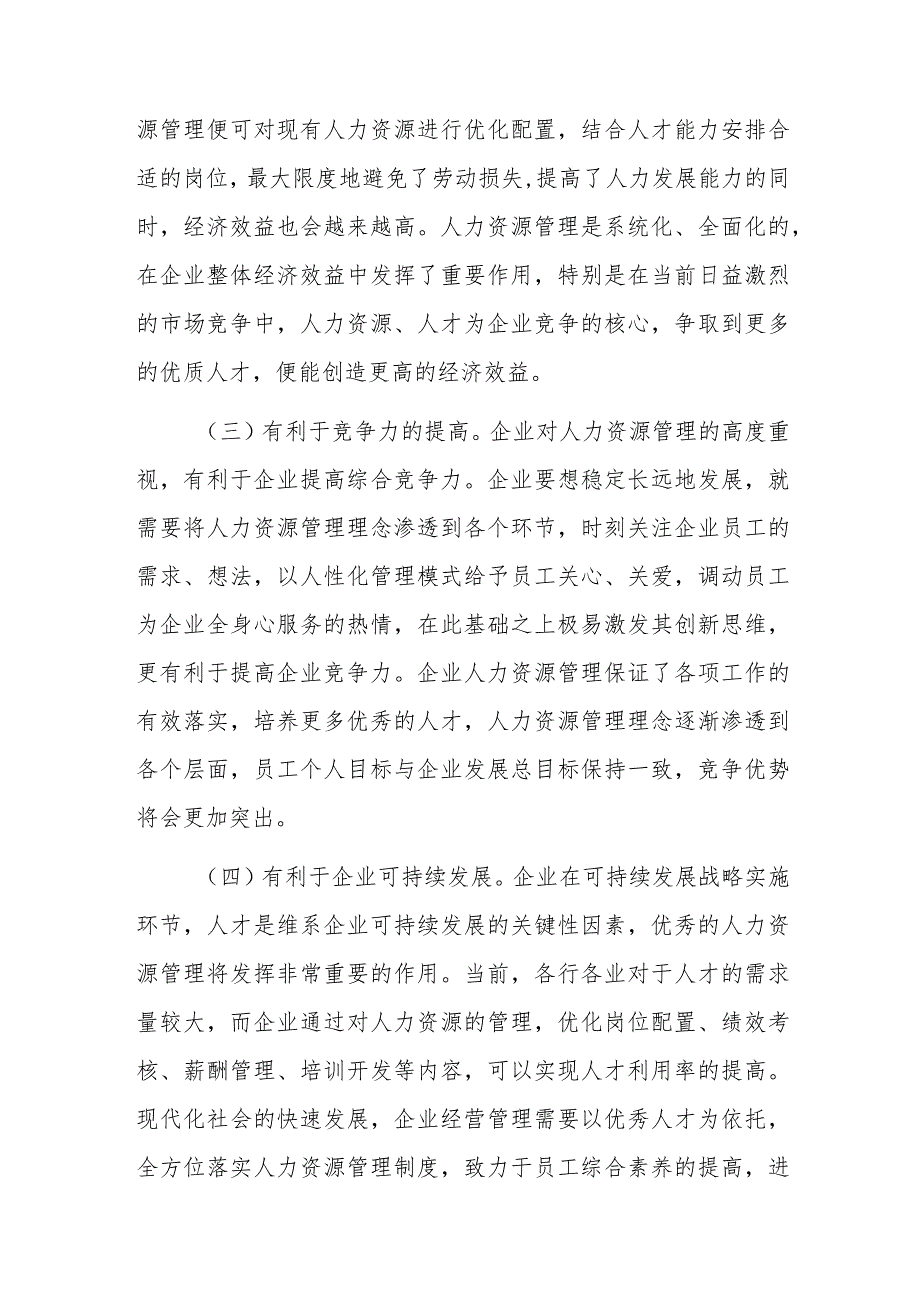 源管理便可对现有人力资源进行优化配置，结合人才能力安排合
适的岗位，最大限度地避免了劳动损失,提高了人力发展能力的同
时，经济效益也会越来越高。人力资源管理是系统化、全面化的，
在企业整体经济效益中发挥了重要作用，特别是在当前日益激烈
的市场竞争中，人力资源、人才为企业竞争的核心，争取到更多
的优质人才，便能创造更高的经济效益。
（三）有利于竞争力的提高。企业对人力资源管理的高度重
视，有利于企业提高综合竞争力。企业要想稳定长远地发展，就
需要将人力资源管理理念渗透到各个环节，时刻关注企业员工的
需求、想法，以人性化管理模式给予员工关心、关爱，调动员工
为企业全身心服务的热情，在此基础之上极易激发其创新思维，
更有利于提高企业竞争力。企业人力资源管理保证了各项工作的
有效落实，培养更多优秀的人才，人力资源管理理念逐渐渗透到
各个层面，员工个人目标与企业发展总目标保持一致，竞争优势
将会更加突出。
（四）有利于企业可持续发展。企业在可持续发展战略实施
环节，人才是维系企业可持续发展的关键性因素，优秀的人力资
源管理将发挥非常重要的作用。当前，各行各业对于人才的需求
量较大，而企业通过对人力资源的管理，优化岗位配置、绩效考
核、薪酬管理、培训开发等内容，可以实现人才利用率的提高。
现代化社会的快速发展，企业经营管理需要以优秀人才为依托，
全方位落实人力资源管理制度，致力于员工综合素养的提高，进